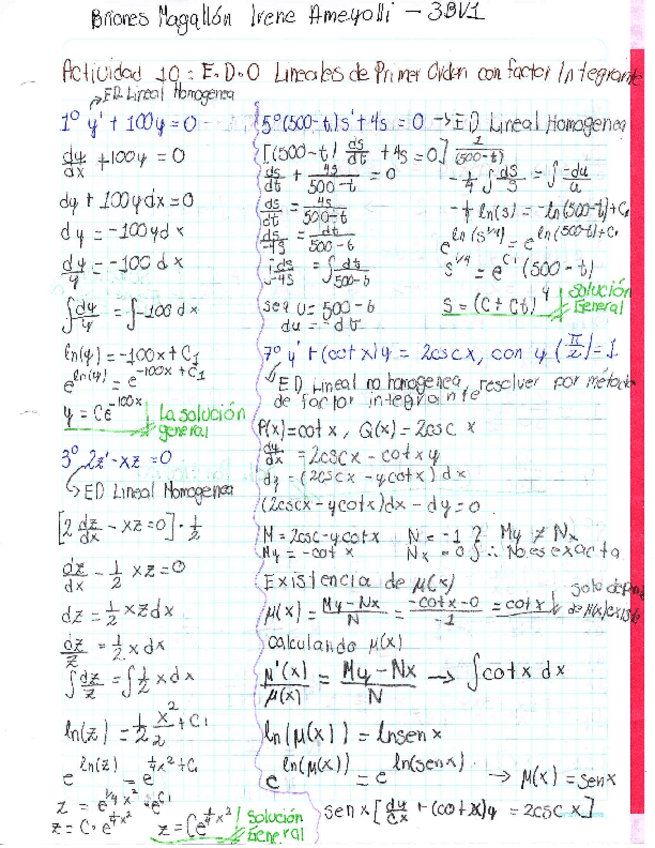 Briones Magallón Irene Ameyalli - 3BV1
Actividad 10: E.D.O Lineales de Primer Orden con factor Integrante
→ED Lineal Homogenea
1° y' + 100y = 0
dy/dx + 100y = 0
dy + 100ydx = 0
dy = -100ydx
dy/y = -100 dx
∫dy/y = ∫-100 dx
ln(y) = -100x + C₁
e^ln(y) = e^-100x + C₁
y = Ce^-100x La solución general
3° 2z' - xz = 0
↳ED Lineal Homogenea
[2 dz/dx - xz = 0] · 1/2
dz/dx - 1/2 xz = 0
dz = 1/2 xzdx
dz/z = 1/2 x dx
∫dz/z = ∫1/2 x dx
ln(z) = 1/2 x²/2 + C₁
e^ln(z) = e^1/4x² + C₁
z = e^1/4x² · e^C₁
z = C · e^1/4x² z = Ce^1/4x² Solución General
5° (500-t)s' + 4s = 0 → ED Lineal Homogenea
[(500-t) ds/dt + 4s = 0] 1/(500-t)
ds/dt + 4s/500-t = 0
ds/dt = 4s/500-t
ds/-4s = dt/500-t
∫ds/-4s = ∫dt/500-t
sea u = 500-t
du = -dt
-1/4 ∫ds/s = ∫-du/u
-1/4 ln(s) = -ln(500-t) + C₁
e^ln(s^1/4) = e^ln(500-t) + C₁
s^1/4 = e^C₁ (500-t)
s = (C + Ct)^4 Solución General
7° y' + (cot x)y = 2csc x, con y(π/2) = 1
↳ED Lineal no homogenea, resolver por método
de factor integrante
P(x) = cot x, Q(x) = 2csc x
dy/dx = 2cscx - cotxy
dy = (2cscx - ycotx) dx
(2cscx - ycotx)dx - dy = 0
M = 2csc - ycotx N = -1 } My ≠ Nx
My = -cot x Nx = 0 } ∴ No es exacta
Existencia de μ(x)
μ(x) = My - Nx/N = -cotx - 0/-1 = cotx Solo depende
de M(x) existe
calculando μ(x)
μ'(x)/μ(x) = My - Nx/N → ∫cotx dx
ln(μ(x)) = lnsen x
e^ln(μ(x)) = e^ln(senx) → μ(x) = senx
sen x [dy/dx + (cotx)y = 2csc x]